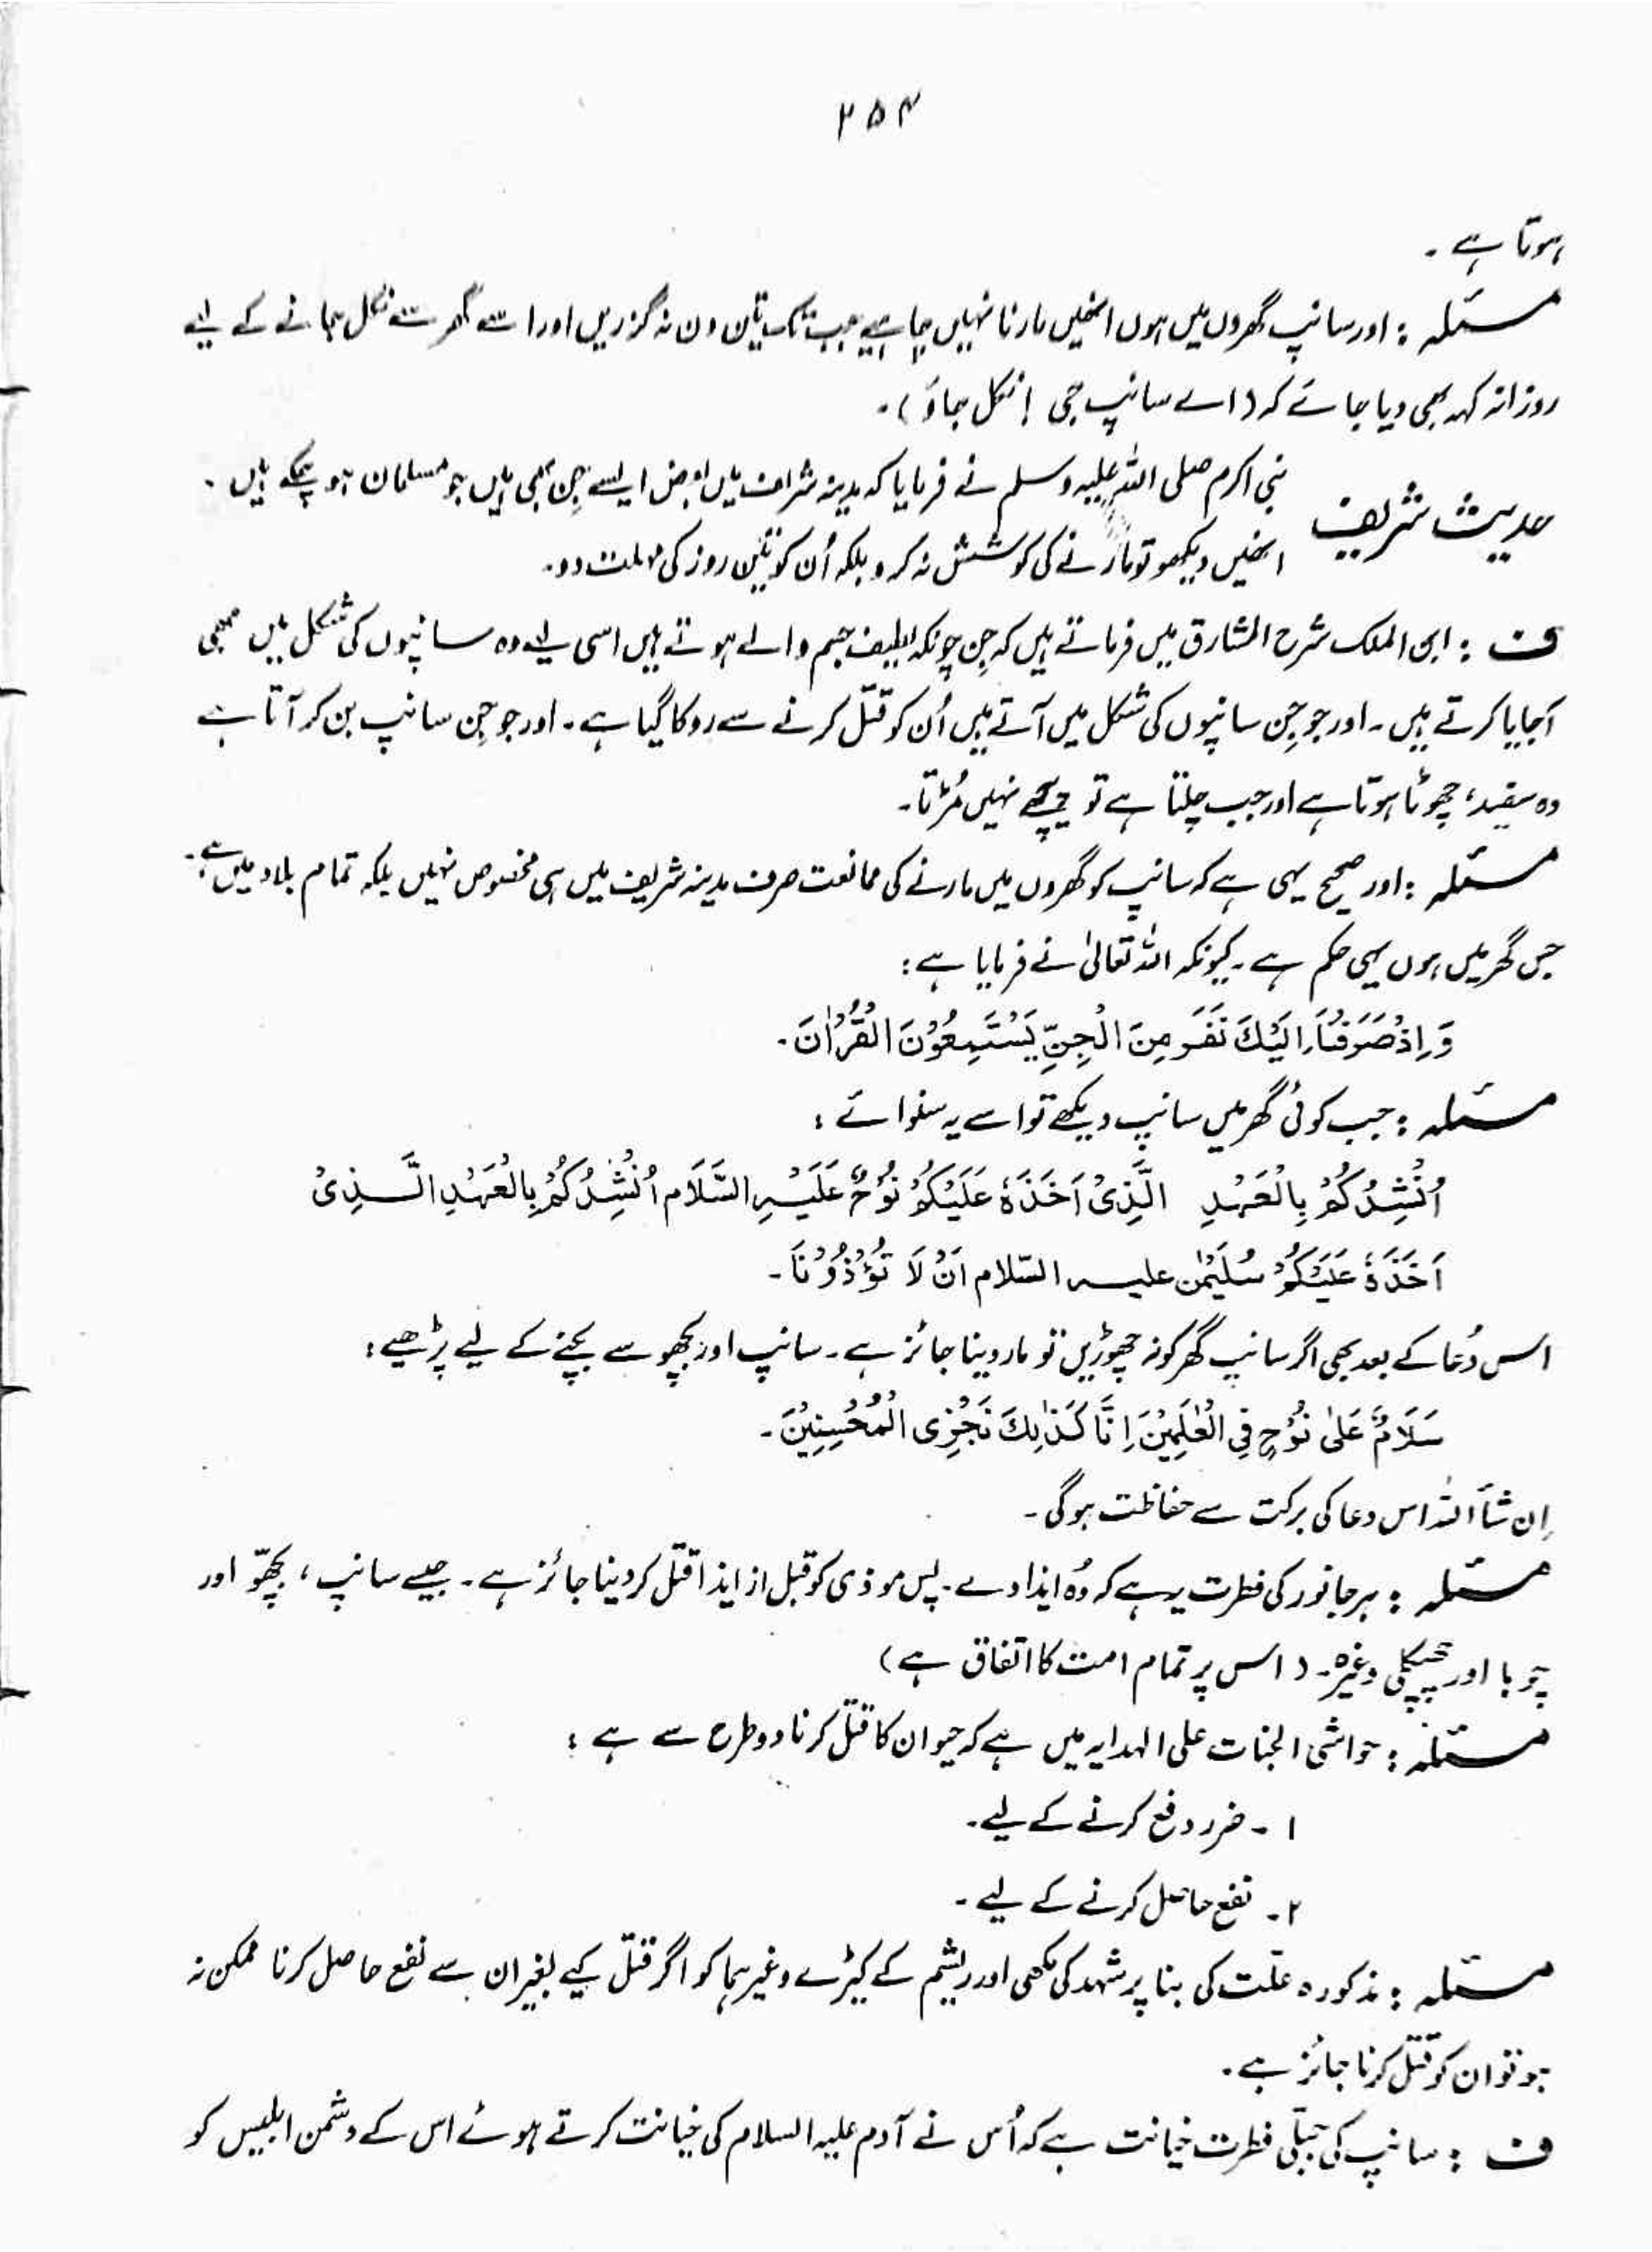 ۲۵۴
ہوتا ہے ۔
مسئلہ : اور سانپ گھروں میں ہوں انھیں مارنا نہیں چاہیے جب تک تین دن نہ گزریں اور اسے گھر سے نکل جانے کے لیے
روزانہ کہہ بھی دیا جائے کہ (اے سانپ جی ! نکل جاؤ) ۔
حدیث شریف نبی اکرم صلی اللہ علیہ وسلم نے فرمایا کہ مدینہ شریف میں بعض ایسے جِن بھی ہیں جو مسلمان ہو چکے ہیں ۔
انھیں دیکھو تو مارنے کی کوشش نہ کرو بلکہ اُن کو تین روز کی مہلت دو۔
ف : ابن الملک شرح المشارق میں فرماتے ہیں کہ جِن چونکہ لطیف جسم والے ہوتے ہیں اسی لیے وہ سانپوں کی شکل میں بھی
آجایا کرتے ہیں ۔ اور جو جِن سانپوں کی شکل میں آتے ہیں اُن کو قتل کرنے سے روکا گیا ہے ۔ اور جو جِن سانپ بن کر آتا ہے
وہ سفید، چھوٹا ہوتا ہے اور جب چلتا ہے تو پیچھے نہیں مُڑتا۔
مسئلہ : اور صحیح یہی ہے کہ سانپ کو گھروں میں مارنے کی ممانعت صرف مدینہ شریف میں ہی مخصوص نہیں بلکہ تمام بلاد میں ہے ۔
جس گھر میں ہوں یہی حکم ہے ۔ کیونکہ اللہ تعالیٰ نے فرمایا ہے :
وَ اِذْ صَرَفْنَآ اِلَيْكَ نَفَرَ مِنَ الْجِنِّ يَسْتَمِعُوْنَ الْقُرْاٰنَ ۔
مسئلہ : جب کوئی گھر میں سانپ دیکھے تو اسے یہ سنوائے :
اُنْشِدُكُمْ بِالْعَهْدِ الَّذِىْ اَخَذَهٗ عَلَيْكُمْ نُوْحٌ عَلَيْهِ السَّلَام اُنْشِدُكُمْ بِالْعَهْدِ الَّذِىْ
اَخَذَهٗ عَلَيْكُمْ سُلَيْمٰن عليه السّلام اَنْ لَا تُؤْذُوْنَا ۔
اس دُعا کے بعد بھی اگر سانپ گھر کو نہ چھوڑیں تو مار دینا جائز ہے ۔ سانپ اور بچھو سے بچنے کے لیے پڑھیے :
سَلَامٌ عَلٰى نُوْحٍ فِى الْعٰلَمِيْنَ اِنَّا كَذٰلِكَ نَجْزِى الْمُحْسِنِيْنَ ۔
اِن شآ اللہ اس دعا کی برکت سے حفاظت ہوگی ۔
مسئلہ : ہر جانور کی فطرت یہ ہے کہ وُہ ایذا دے ۔ پس موذی کو قبل از ایذا قتل کر دینا جائز ہے ۔ جیسے سانپ ، بچھّو اور
چوہا اور چھپکلی وغیرہ ۔ (اس پر تمام امت کا اتفاق ہے)
مسئلہ : حواشی الخبات علی الہدایہ میں ہے کہ حیوان کا قتل کرنا دو طرح سے ہے :
۱ ۔ ضرر دفع کرنے کے لیے ۔
۲ ۔ نفع حاصل کرنے کے لیے ۔
مسئلہ : مذکورہ علّت کی بنا پر شہد کی مکھی اور ریشم کے کیڑے وغیرہما کو اگر قتل کیے بغیر ان سے نفع حاصل کرنا ممکن نہ
ہو تو ان کو قتل کرنا جائز ہے ۔
ف : سانپ کی جبلّی فطرت خیانت ہے کہ اُس نے آدم علیہ السلام کی خیانت کرتے ہوئے اس کے دشمن ابلیس کو